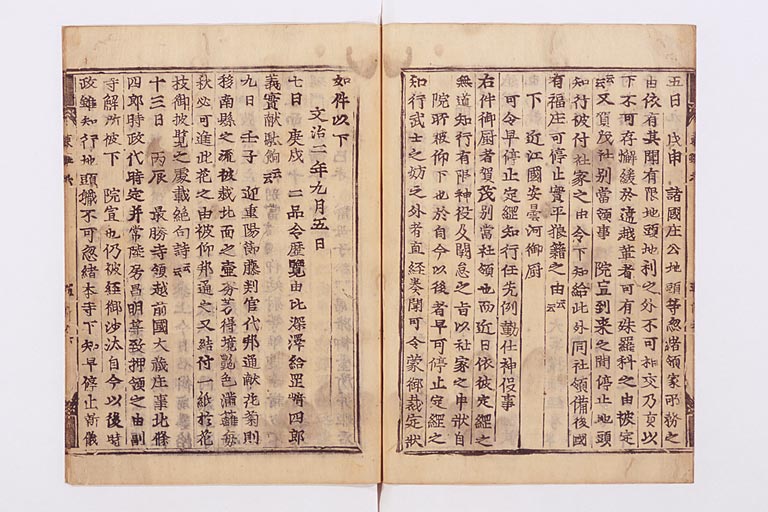 五日 戊申 諸國庄公地頭等忽諸領家所務之
由依有其聞有限地頭地利之外不可相交乃貢以
下不可存懈緩於違越輩者可有殊罪科之由被定
云云又賀茂社別當領事 院宣到来之間停止地頭
知行被付社家之由令下知給此外同社領備後國
有福庄可停止實平狼藉之由云云
下 近江國安曇河御厨
可令早停止定綱知行任先例勤仕神役事
右件御厨者賀茂別當社領也而近日依被定綱之
無道知行有限神役及闕怠之旨以社家之申狀自
院所被仰下也於自今以後者早可停止定綱之
知行武士之妨之外者直經奏聞可令蒙御裁定狀
如件以下
文治二年九月五日
七日 庚戌 二品令歷覽由比深澤給罡崎四郎
義實献駄餉云云
九日 壬子 迎重陽御藤判官代邦通献花菊則
移南縣之流被栽北面之壺芬芳得境艶色滿籬毎
秋必可進此花之由被仰邦通之又結付一紙於花
技御披覽之處載絶句詩云云
十三日 丙辰 最勝寺領越前國大藏庄事北條
四郎時政代時定并常陸房昌明等致押領之由副
寺解所被下 院宣也仍被經御沙汰自今以後時
政雖知行地頭職不可忽緒本寺下知早停止新儀